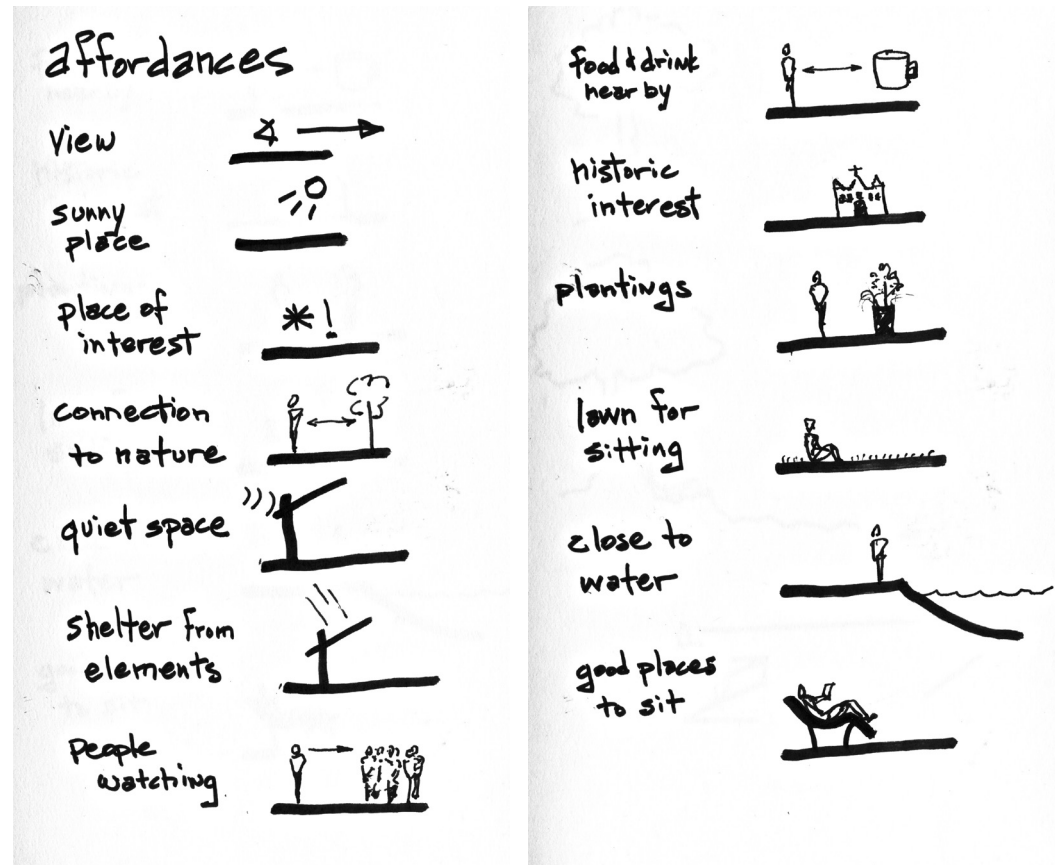 affordances
view
sunny
place
place of
interest
connection
to nature
quiet space
shelter from
elements
people
watching
food & drink
near by
historic
interest
plantings
lawn for
sitting
close to
water
good places
to sit